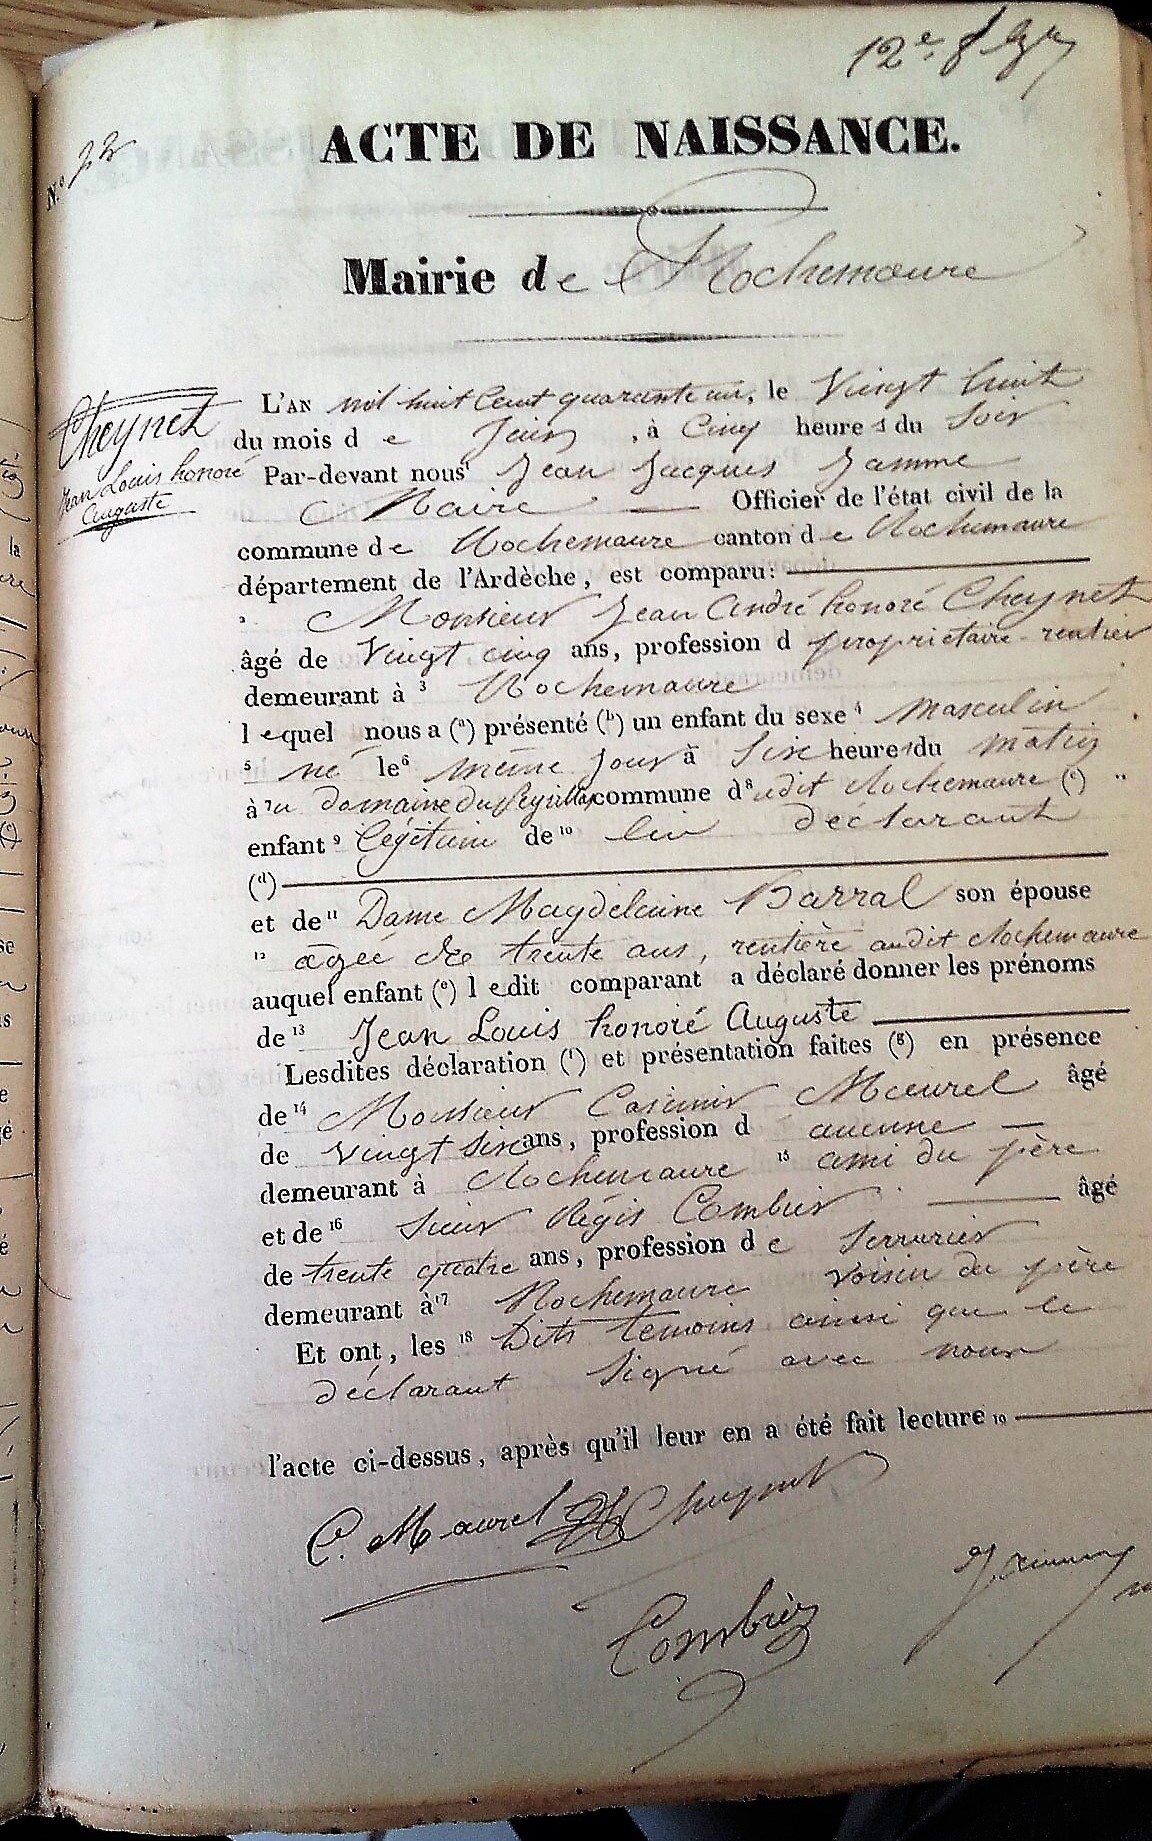 12e f
ACTE DE NAISSANCE.
N.o 23
Mairie de Rochemaure
Cheynet
Jean Louis honoré
Auguste
L'AN mil huit Cent quarante un, le Vingt huit
du mois de Juin, à Cinq heures du Soir
Par-devant nous1 Jean Jacques Jamme
Maire — Officier de l'état civil de la
commune de Rochemaure canton de Rochemaure
département de l'Ardèche, est comparu:
2 Monsieur Jean André honoré Cheynet
âgé de Vingt cinq ans, profession d propriétaire-rentier
demeurant à 3 Rochemaure
lequel nous a (a) présenté (b) un enfant du sexe 4 masculin
5 né le6 même jour à Six heures du matin
à 7u domaine du commune d8udit Rochemaure (c) "
enfant 9 légitime de 10 lui déclarant
(d)
et de 11 Dame Magdelaine Barral son épouse
12 agée de trente ans, rentière audit Rochemaure
auquel enfant (e) ledit comparant a déclaré donner les prénoms
de 13 Jean Louis honoré Auguste
Lesdites déclaration (f) et présentation faites (g) en présence
de 14 Monsieur Casimir Maurel âgé
de Vingt Six ans, profession d aucune —
demeurant à Rochemaure 15 ami du père
et de 16 Sieur Régis Combier — âgé
de trente quatre ans, profession de Serrurier
demeurant à 17 Rochemaure voisin du père
Et ont, les 18 Dits temoins ainsi que le
déclarant Signé avec nous
l'acte ci-dessus, après qu'il leur en a été fait lecture 19 —
C. Maurel H Cheynet
Jamme
Combier